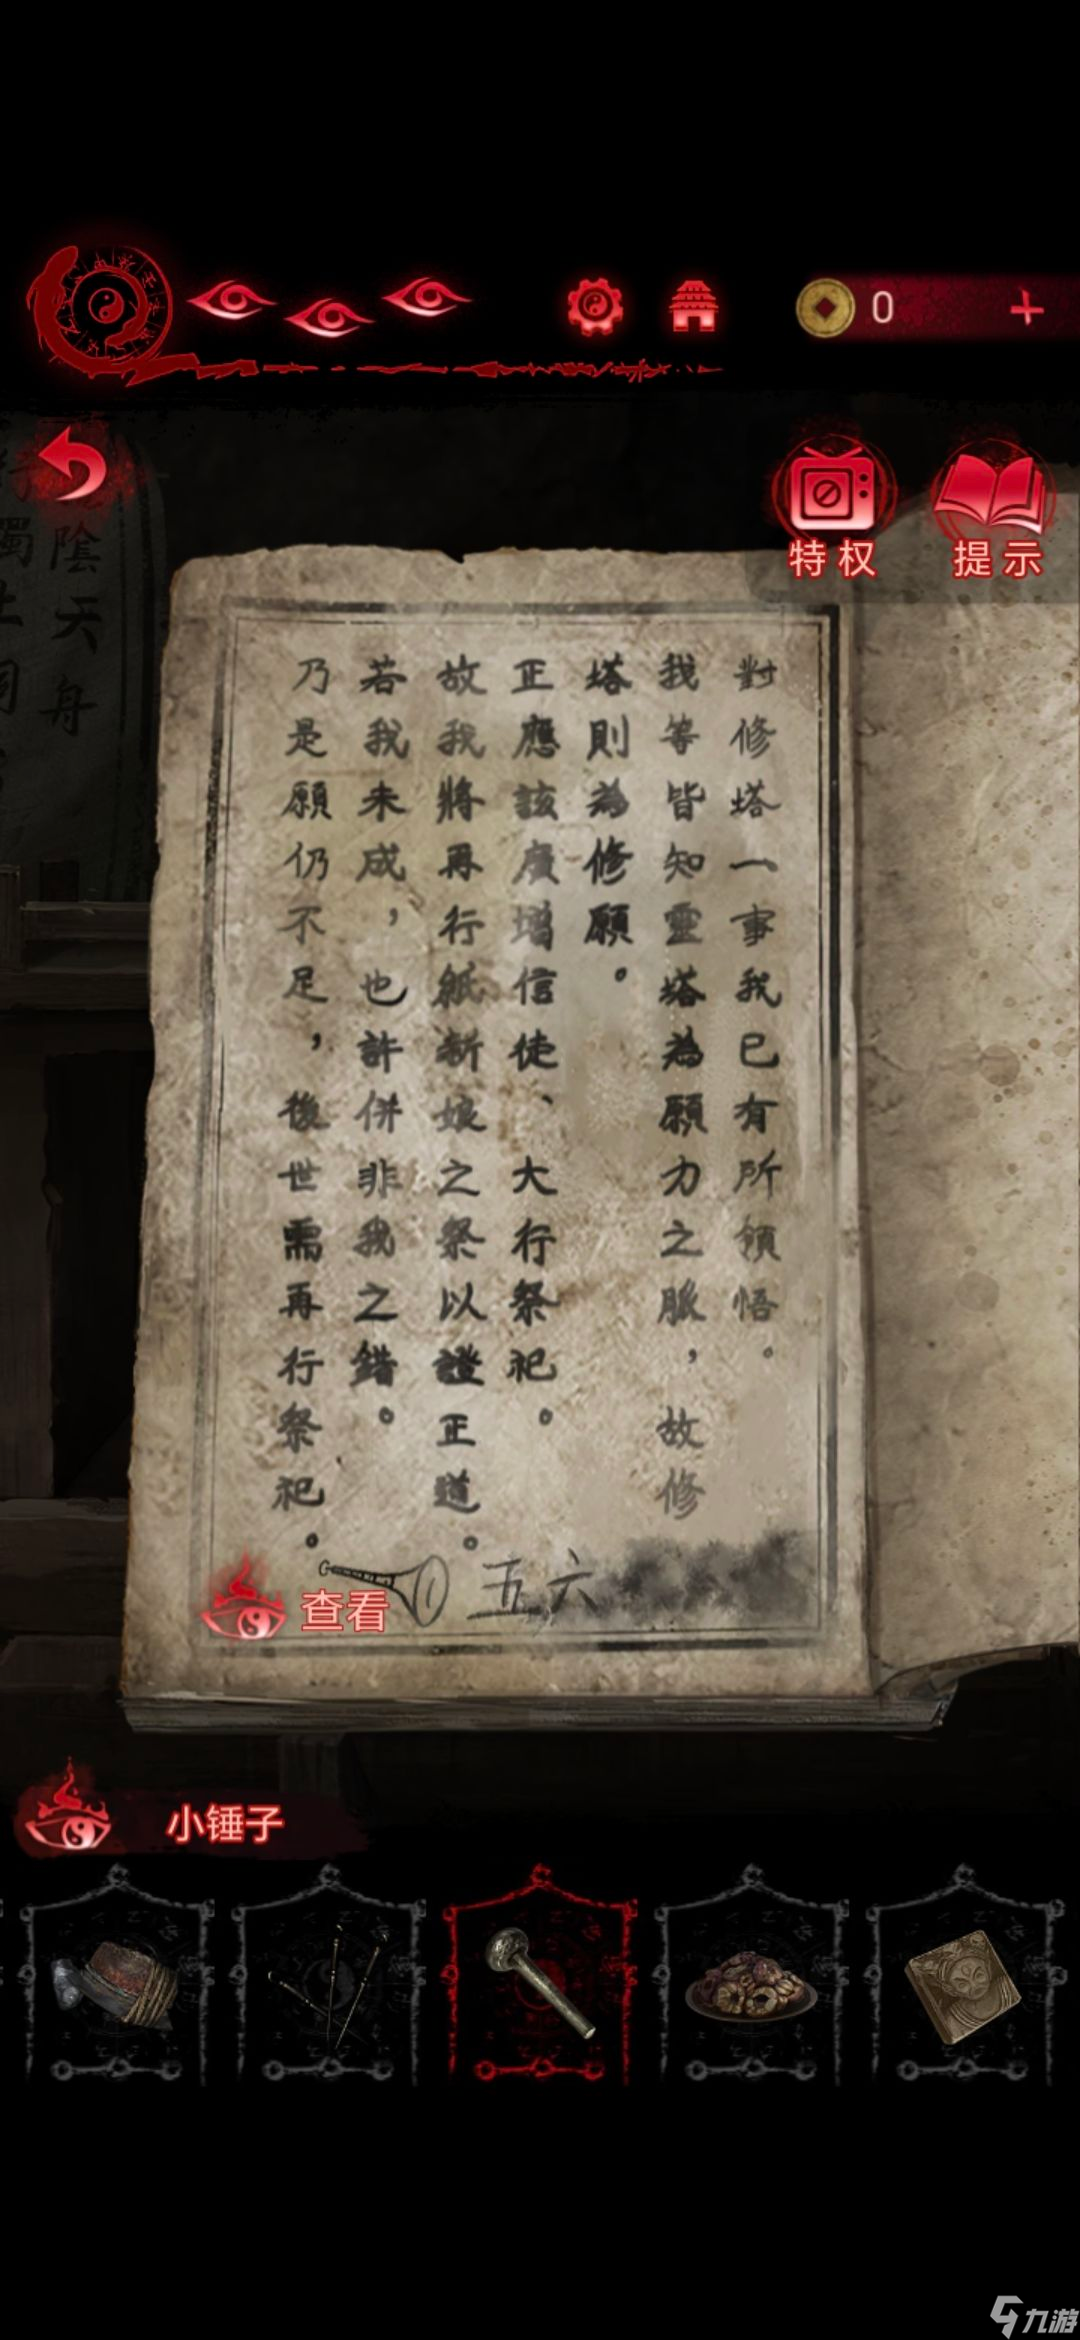 0
特权
提示
陰天舟
對修塔一事我已有所領悟。
我等皆知靈塔為願力之脈，故修
塔則為修願。
正應該廣增信徒、大行祭祀。
故我將再行紙新娘之祭以證正道。
若我未成，也許併非我之錯。
乃是願仍不足，後世需再行祭祀。
五六
查看
小锤子
九游